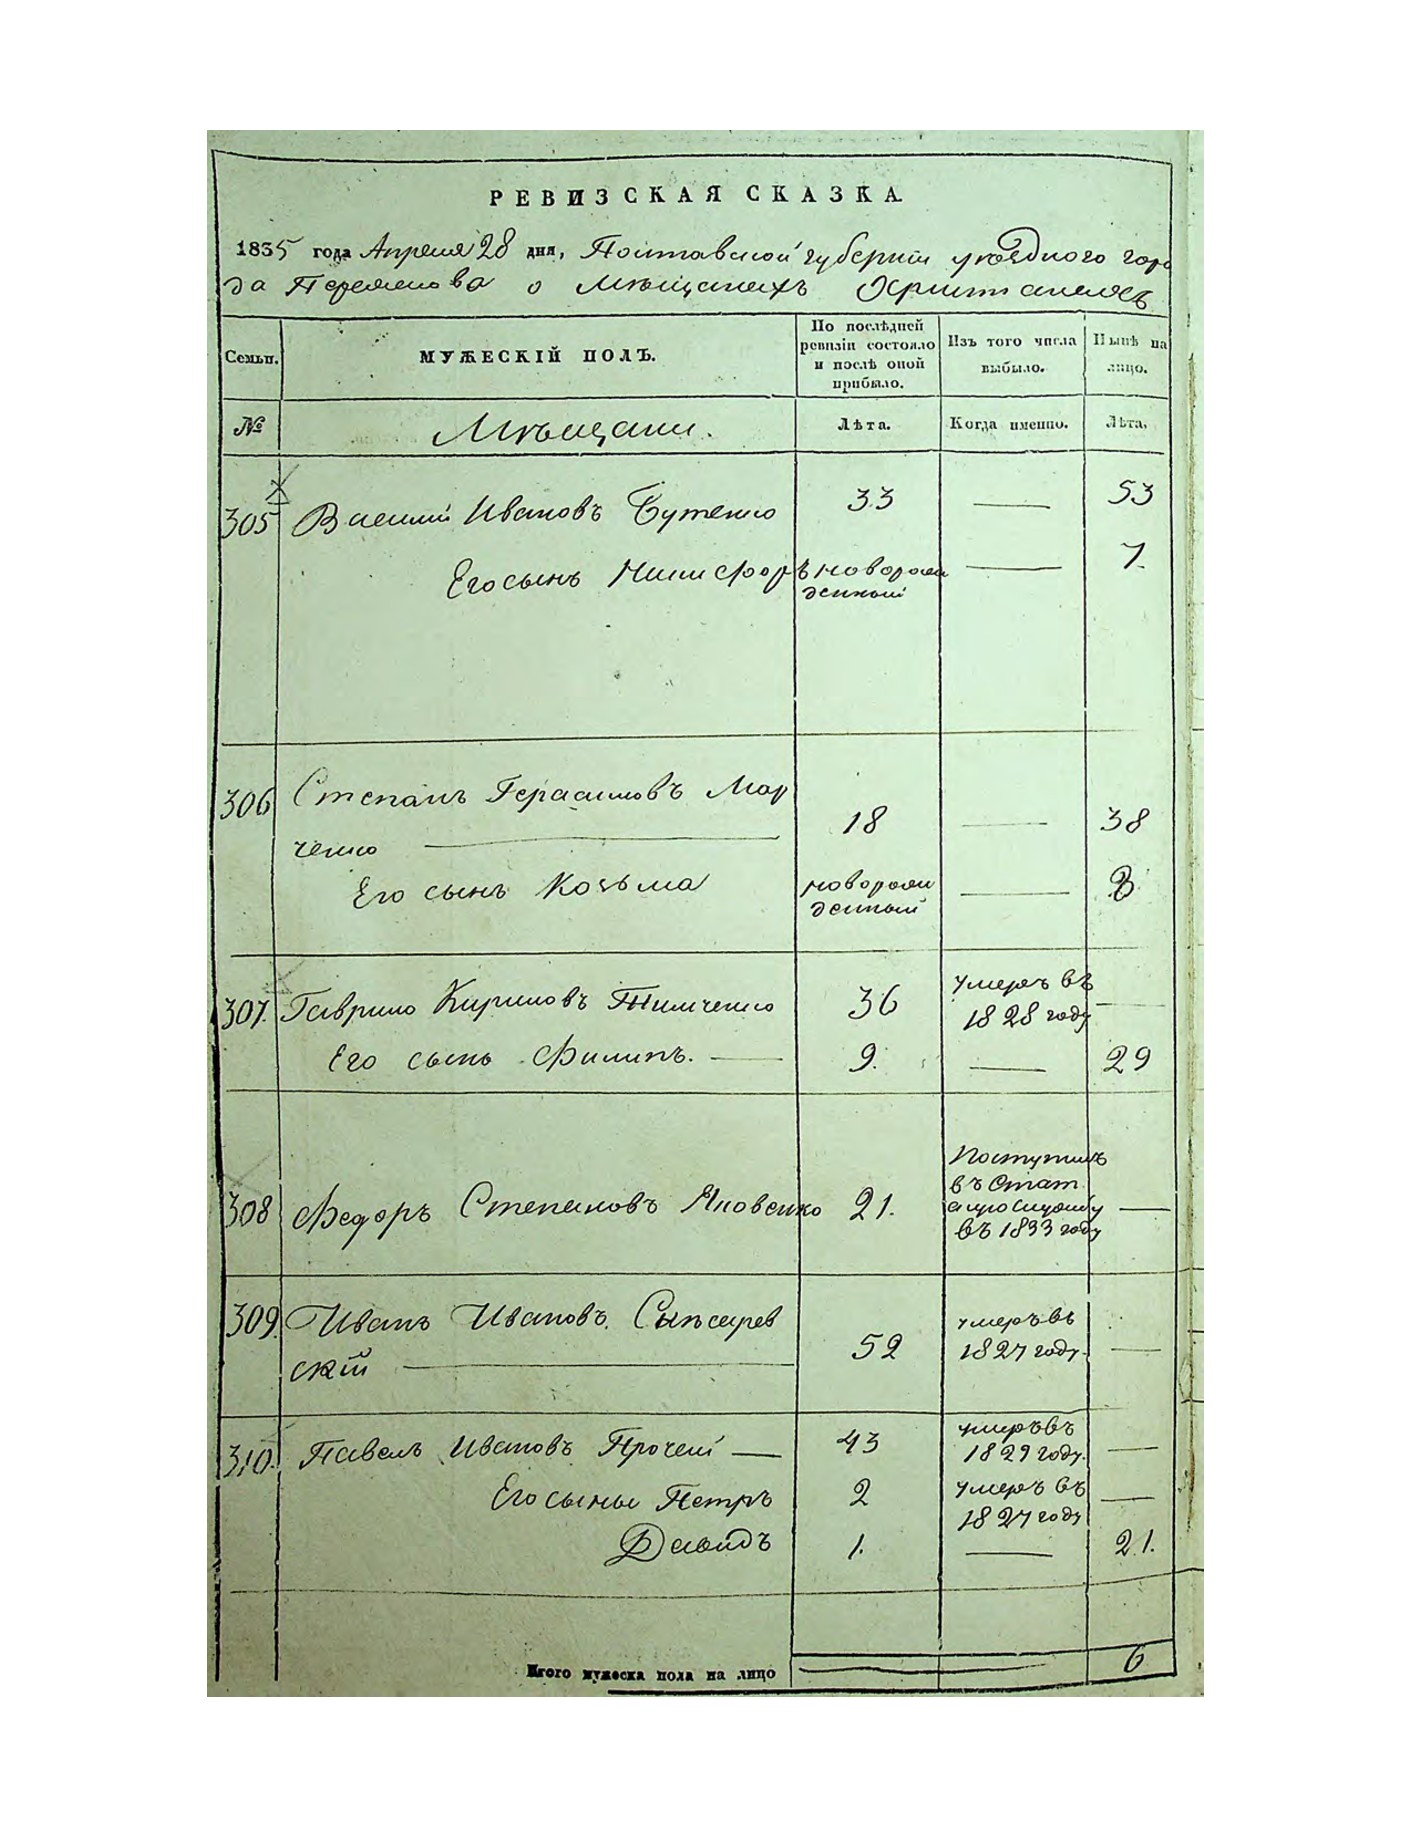 РЕВИЗСКАЯ СКАЗКА.
1835 года Апреля 28 дня, Полтавской губернии уѣздного горо
да Переяслова о Мѣщанахъ Христианехъ
Семьи.
МУЖЕСКІЙ ПОЛЪ.
По послѣдней ревизіи состояло и послѣ оной прибыло.
Изъ того числа выбыло.
Нынѣ на лицо.
№
Мѣщани.
Лѣта.
Когда именно.
Лѣта.
305 Василий Ивановъ Бутенко 33 — 53
Его сынъ Никифоръ новорож — 7.
денный
306 Степанъ Герасимовъ Мар
18 — 38
ченко —
Его сынъ Козьма новорож — 8
денный
307. Гаврило Кириловъ Тимченко 36 умеръ въ —
1828 году
Его сынъ Филипъ. — 9. — 29
Поступилъ
въ Стат
308 Федоръ Степановъ Яковенко 21. скую службу —
въ 1833 году
309. Иванъ Ивановъ умеръ въ
ский — 52 1827 году. —
310. Павелъ Ивановъ — 43 умеръ въ —
1829 году.
Его сыны Петръ 2 умеръ въ —
1827 году
Давидъ 1. — 21.
Итого мужеска пола на лицо — 6